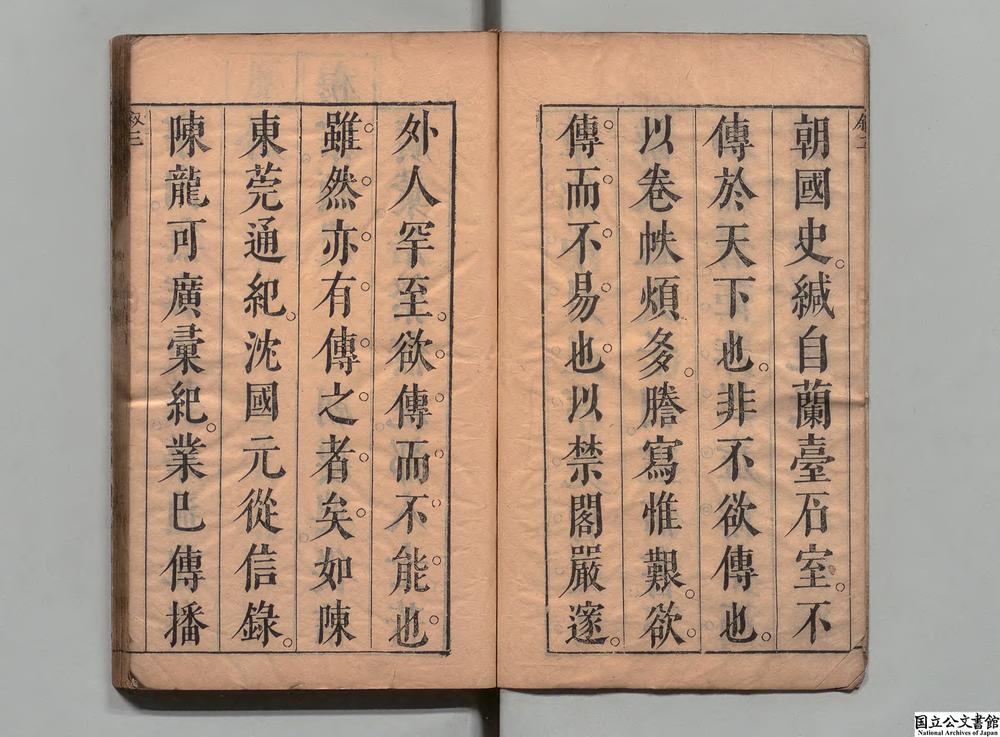 朝國史。緘自蘭臺石室。不
傳於天下也。非不欲傳也。
以卷帙煩多。謄寫惟艱。欲
傳而不易也。以禁閣嚴邃。
外人罕至。欲傳而不能也。
雖然亦有傳之者矣。如陳
東莞通紀。沈國元從信錄。
陳龍可廣彙紀。業已傳播
叙三
国立公文書館
National Archives of Japan